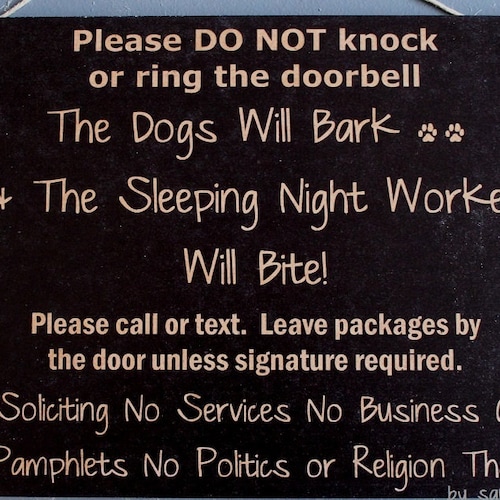 Please DO NOT knock
or ring the doorbell
The Dogs Will Bark
The Sleeping Night
Will Bite!
Please call or text. Leave packages by
the door unless signature required.
Soliciting No Services No Business
Pamphlets No Politics or Religion
by